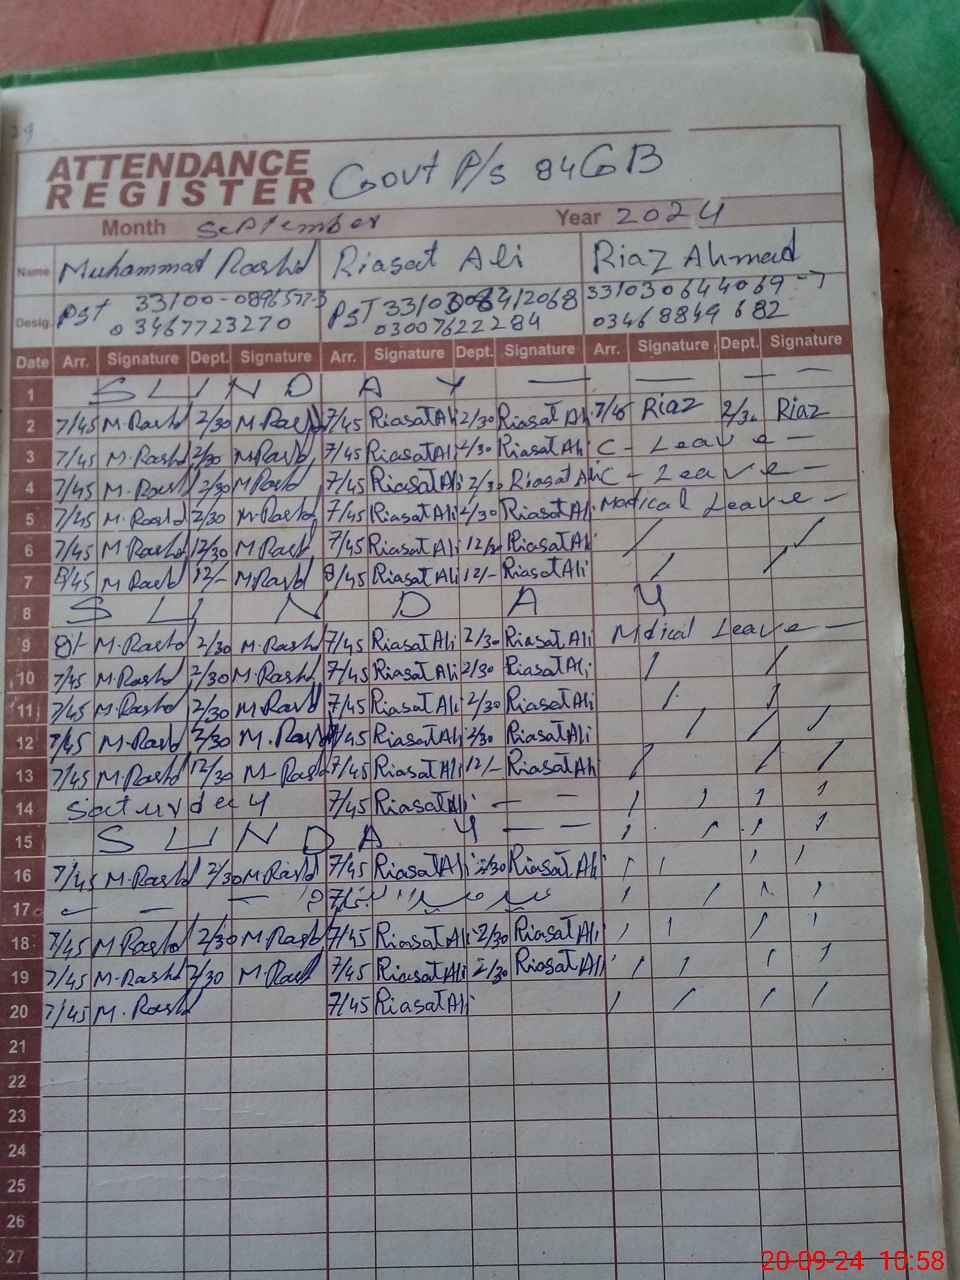 39
ATTENDANCE
REGISTER Govt P/S 84GB
Month September Year 2024
Name Muhammad Rashid Riasat Ali Riaz Ahmad
Desig. PST 33100-0896577-3 PST 33103 8412068 331030644069-7
03467723270 03007622284 03468849682
Date Arr. Signature Dept. Signature Arr. Signature Dept. Signature Arr. Signature Dept. Signature
1 SUNDAY — — — —
2 7/45 M.Rashd 2/30 M.Rashd 7/45 Riasat Ali 2/30 Riasat Ali 7/45 Riaz 2/30 Riaz
3 7/45 M.Rashd 2/30 M.Rashd 7/45 Riasat Ali 2/30 Riasat Ali C - Leave -
4 7/45 M.Rashd 2/30 M.Rashd 7/45 Riasat Ali 2/30 Riasat Ali C - Leave -
5 7/45 M.Rashd 2/30 M.Rashd 7/45 Riasat Ali 2/30 Riasat Ali Medical Leave -
6 7/45 M.Rashd 12/30 M.Rashd 7/45 Riasat Ali 12/30 Riasat Ali / /
7 8/45 M.Rashd 12/- M.Rashd 8/45 Riasat Ali 12/- Riasat Ali / /
8 SUNDAY
9 8/- M.Rashd 2/30 M.Rashd 7/45 Riasat Ali 2/30 Riasat Ali Mdical Leave -
10 7/45 M.Rashd 2/30 M.Rashd 7/45 Riasat Ali 2/30 Riasat Ali / /
11 7/45 M.Rashd 2/30 M.Rashd 7/45 Riasat Ali 2/30 Riasat Ali / /
12 7/45 M.Rashd 2/30 M.Rashd 7/45 Riasat Ali 2/30 Riasat Ali / / /
13 7/45 M.Rashd 12/30 M.Rashd 7/45 Riasat Ali 12/- Riasat Ali / / /
14 Saturday 7/45 Riasat Ali - - / / / /
15 SUNDAY - - / / / /
16 7/45 M.Rashd 2/30 M.Rashd 7/45 Riasat Ali 2/30 Riasat Ali / / / /
17 - - - / / / /
18 7/45 M.Rashd 2/30 M.Rashd 7/45 Riasat Ali 2/30 Riasat Ali / / / /
19 7/45 M.Rashd 2/30 M.Rashd 7/45 Riasat Ali 2/30 Riasat Ali / / / /
20 7/45 M.Rashd 7/45 Riasat Ali / / / /
21
22
23
24
25
26
27
20-09-24 10:58